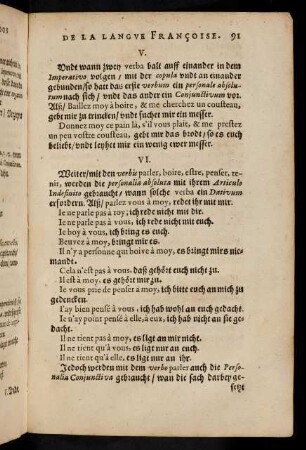 DE LA LANGVE FRANÇOISE. 91
V.
Vndt wann zwey verba balt auff einander in dem
Imperativo volgen/ mit der copula vndt an einander
gebunden/ so hatt das erste verbum ein personale absolu-
tum nach sich/ vndt das ander ein Conjunctivum vor.
Alß/ Baillez moy à boire, & me cherchez un cousteau,
gebt mir zu trincken/ vndt suchet mir ein messer.
Donnez moy ce pain là, s'il vous plait, & me prestez
un peu vostre cousteau, gebt mir das brodt/ so es euch
beliebt/ vndt leyhet mir ein wenig ewer messer.
VI.
Weiter/ mit den verbis parler, boire, estre, penser, te-
nir, werden die personalia absoluta mit ihrem Articulo
Indefinito gebraucht/ wann solche verba ein Dativum
erfordern. Alß/ parlez vous à moy, redet ihr mit mir.
Ie ne parle pas à toy, ich rede nicht mit dir.
Ie ne parle pas à vous, ich rede nicht mit euch.
Ie boy à vous, ich bring es euch.
Beuvez à moy, bringt mir es.
Il n'y a personne qui boive à moy, es bringt mirs nie-
mandt.
Cela n'est pas à vous, daß gehört euch nicht zu.
Il est à moy, es gehört mir zu.
Ie vous prie de penser à moy, ich bitte euch an mich zu
gedencken.
I'ay bien pensé à vous, ich hab wohl an euch gedacht.
Ie n'ay point pensé à elle, à eux, ich hab nicht an sie ge-
dacht.
Il ne tient pas à moy, es ligt an mir nicht.
Il ne tient qu'à vous, es ligt nur an euch.
Il ne tient qu'à elle, es ligt nur an ihr.
Jedoch werden mit dem verbo parler auch die Perso-
nalia Conjunctiva gebraucht/ wan die sach darbey ge-
setzt